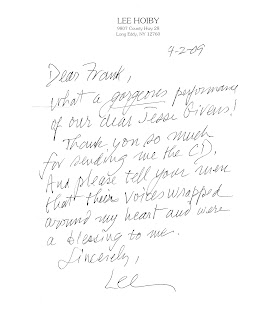 LEE HOIBY
9807 County Hwy 28
Long Eddy, NY 12760
9-2-09
Dear Frank,
What a gorgeous performance
of our dear Jesse Givens!
Thank you so much
for sending me the CD.
And please tell your men
that their voices wrapped
around my heart and were
a blessing to me.
Sincerely,
Lee